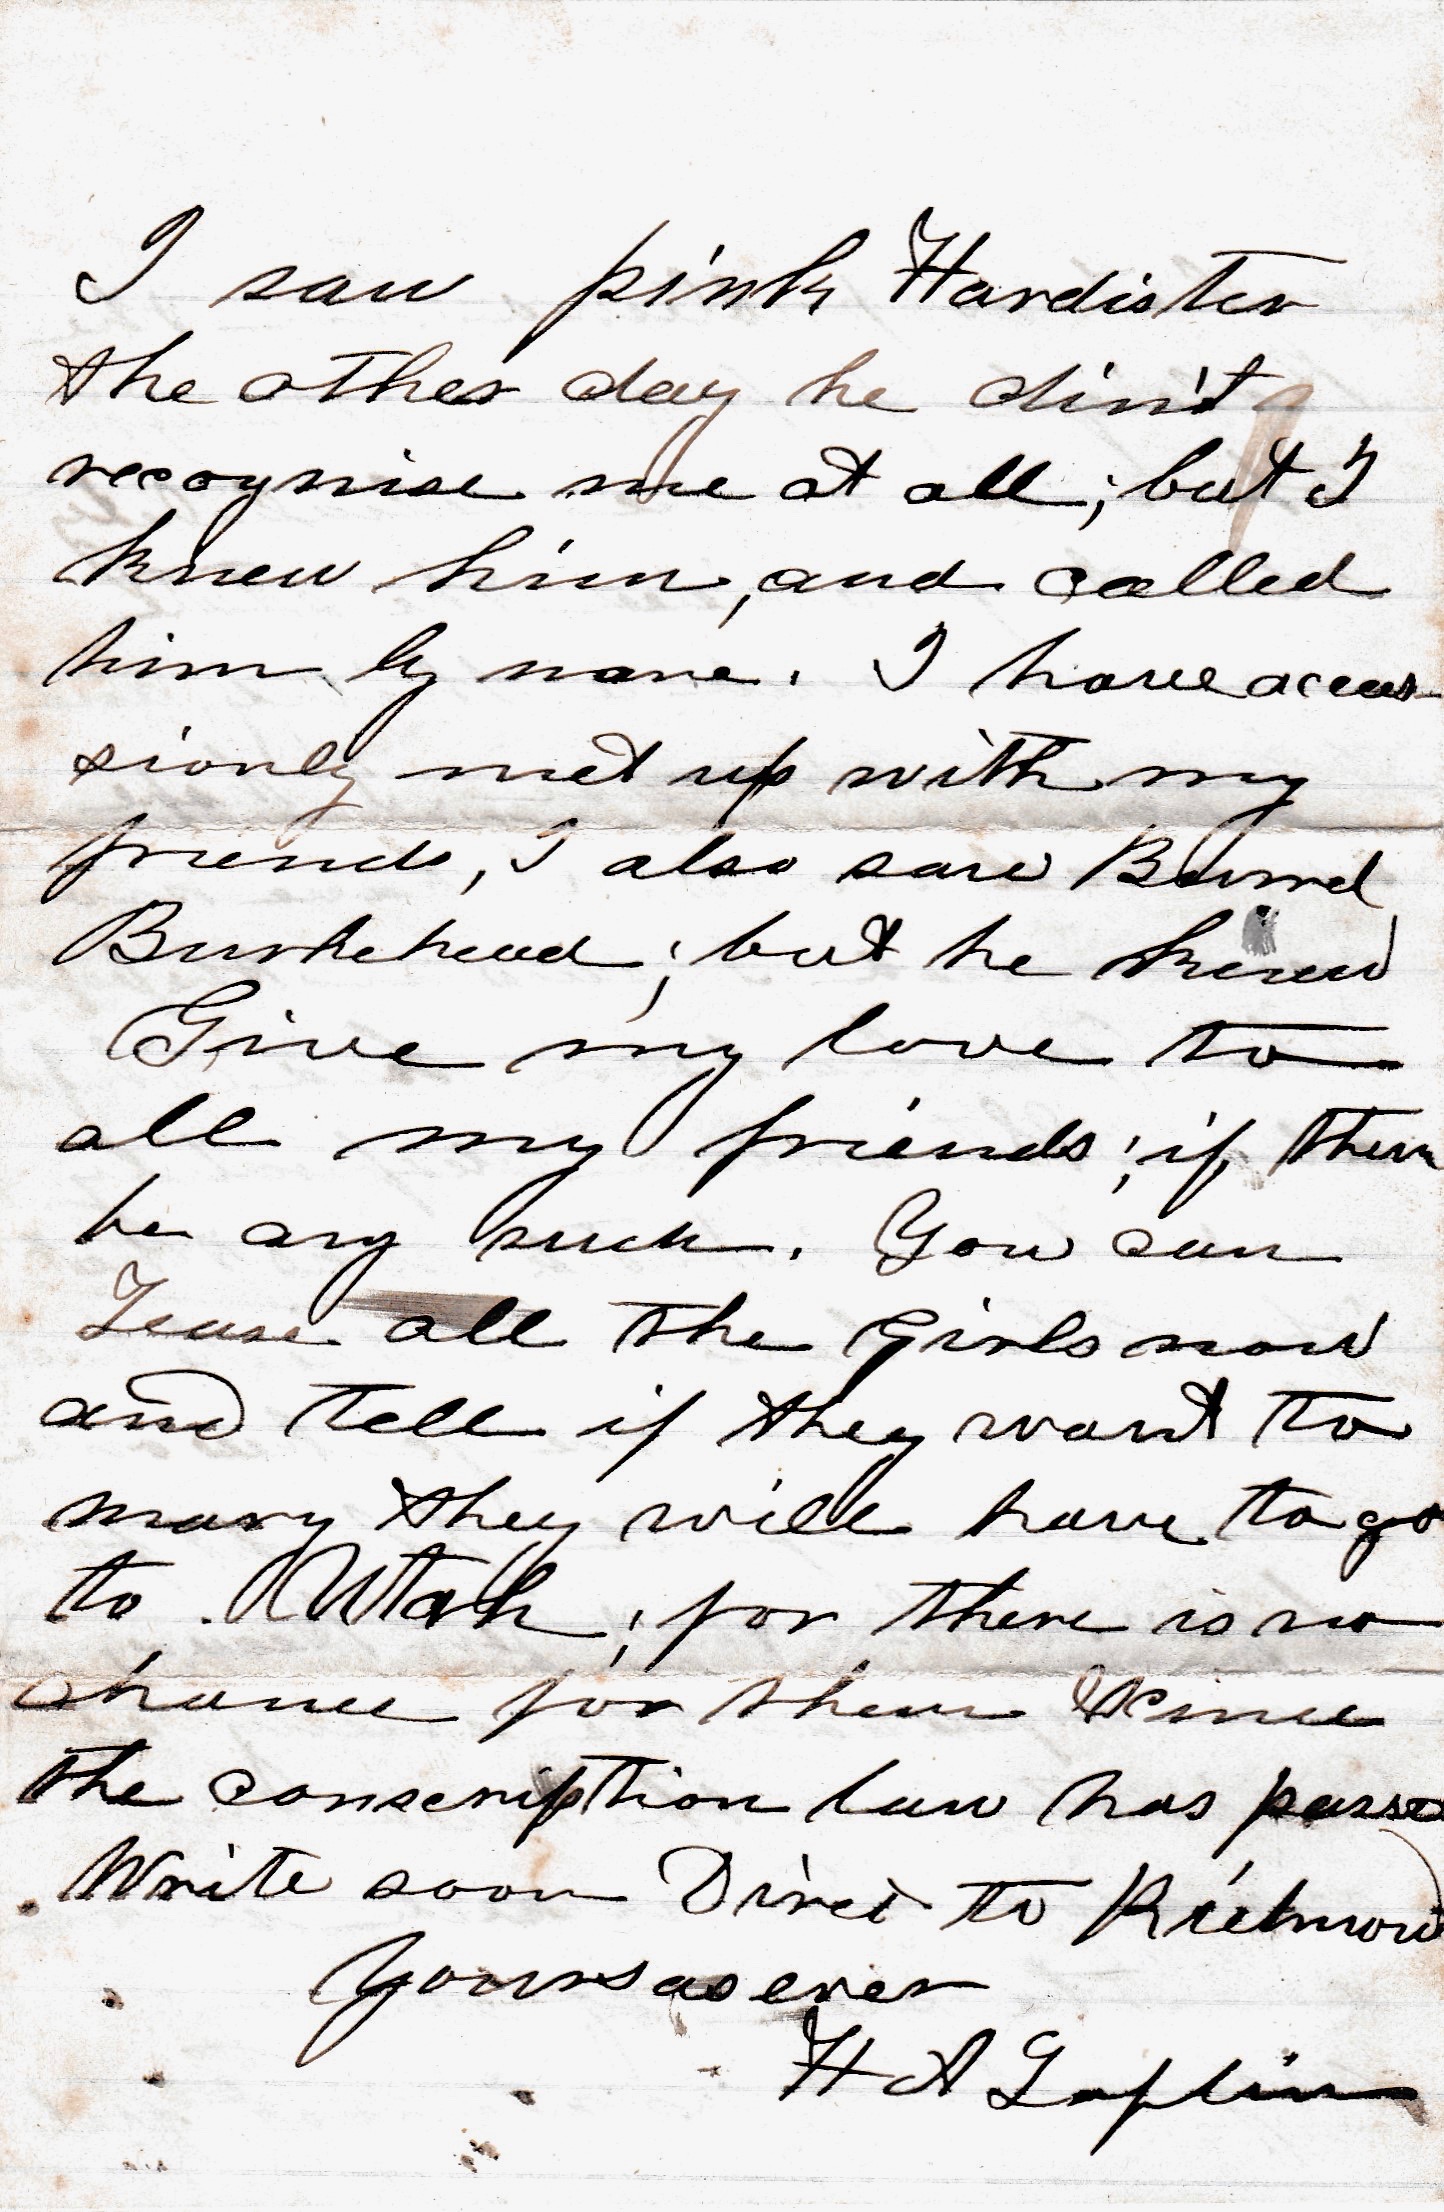 I saw pink Hardister
the other day he din't
recognise me at all; but I
knew him, and called
him by name. I have accas-
sionly met up with my
friends, I also saw
Burkehead; but he knew
Give my love to
all my friends; if there
be any such. You can
Tease all the Girls now
and tell if they want to
mary they will have to go
to Utah; for there is no
chance for them since
the conscription law has passed
Write soon Direct to Richmond
Yours as ever
H A